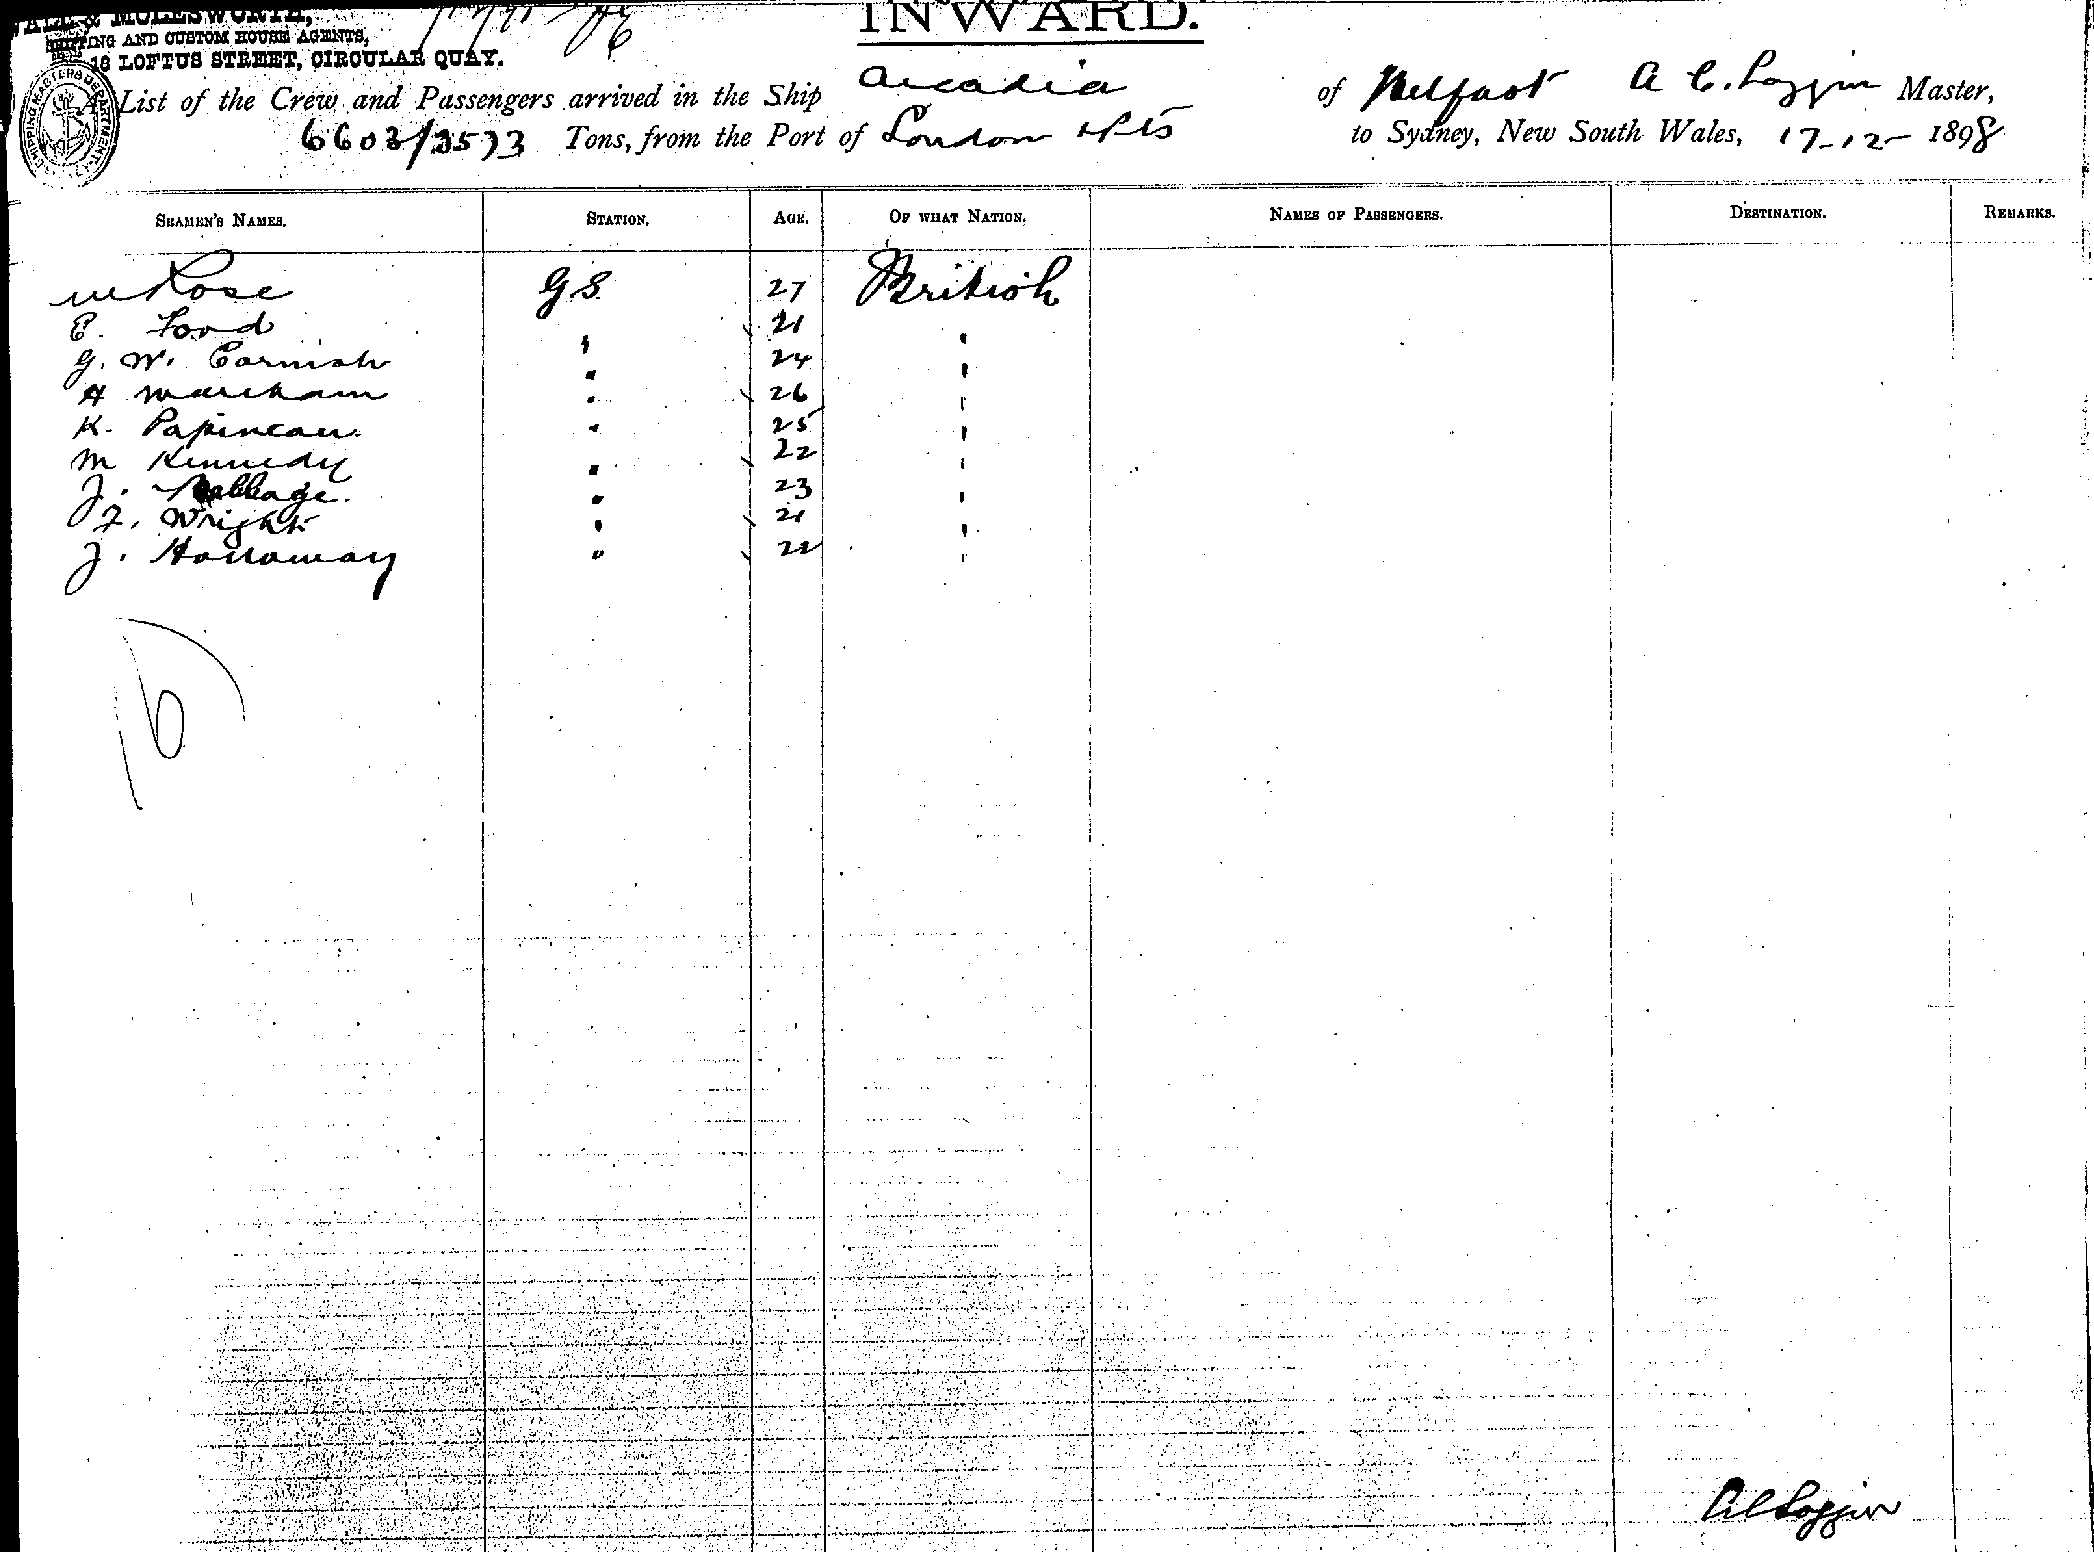 & MOLESWORTH,
SHIPPING AND CUSTOM HOUSE AGENTS,
18 LOFTUS STREET, CIRCULAR QUAY.
INWARD.
SHIPPING MASTERS DEPARTMENT
A List of the Crew and Passengers arrived in the Ship Arcadia of Belfast A C. Loggin Master,
6603/3573 Tons, from the Port of London & Pts to Sydney, New South Wales, 17-12- 1898
SEAMEN'S NAMES. STATION. AGE. OF WHAT NATION. NAMES OF PASSENGERS. DESTINATION. REMARKS.
W Rose G.S. 27 British
E. Ford " 21 "
G. W. Cornish " 24 "
A Marcham " 26 "
K. Papineau " 25 "
M Kennedy " 22 "
J. 23 "
F. Wright " 21 "
J. Holloway " 22 "
A C Loggin